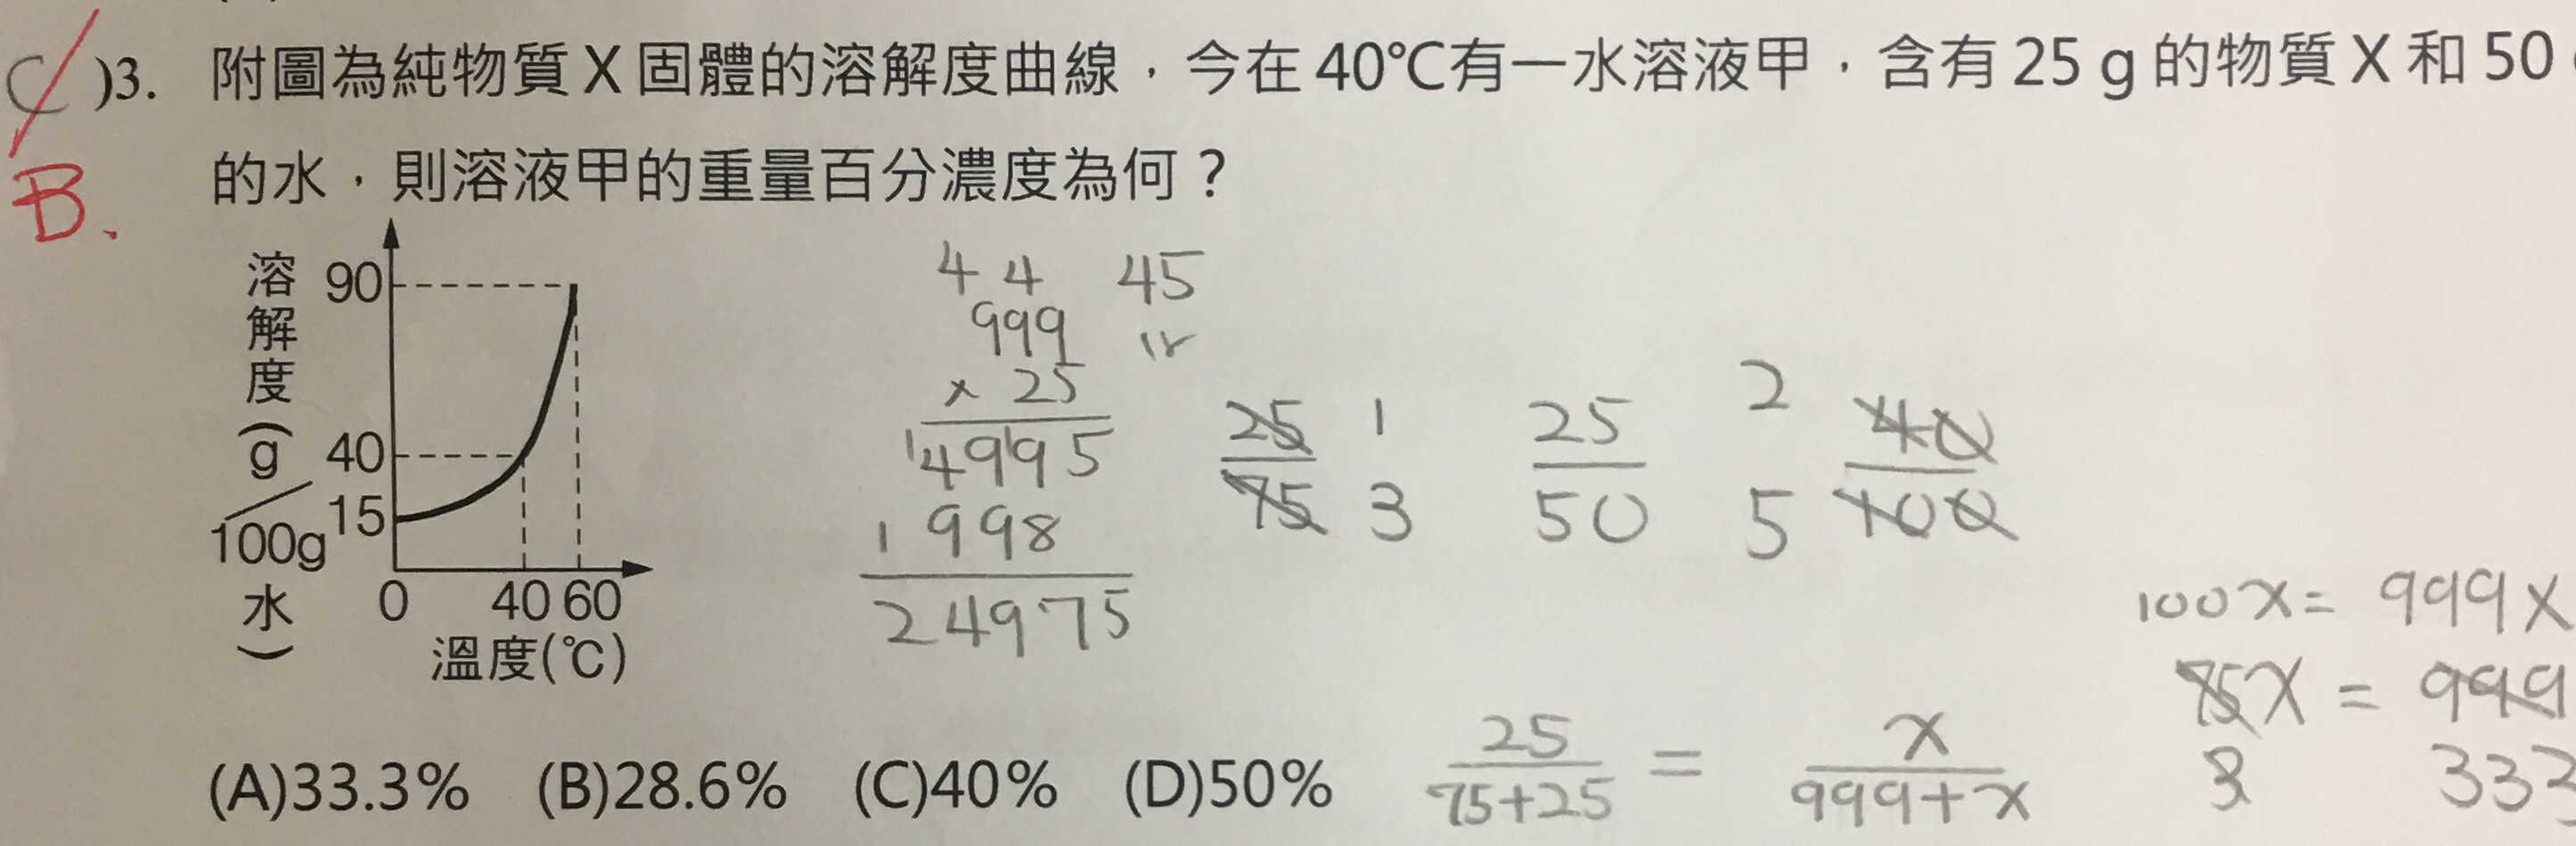 C )3. 附圖為純物質X固體的溶解度曲線，今在40℃有一水溶液甲，含有25 g的物質X和50
B.
的水，則溶液甲的重量百分濃度為何？
溶解度(g/100g水)
90
40
15
0 40 60
溫度(℃)
4 4 45
999
x 25
4995
1998
24975
25 1
75 3
25
50
2 40
5 100
100x = 999x
75x = 999
3 333
25/75+25 = x/999+x
(A)33.3% (B)28.6% (C)40% (D)50%